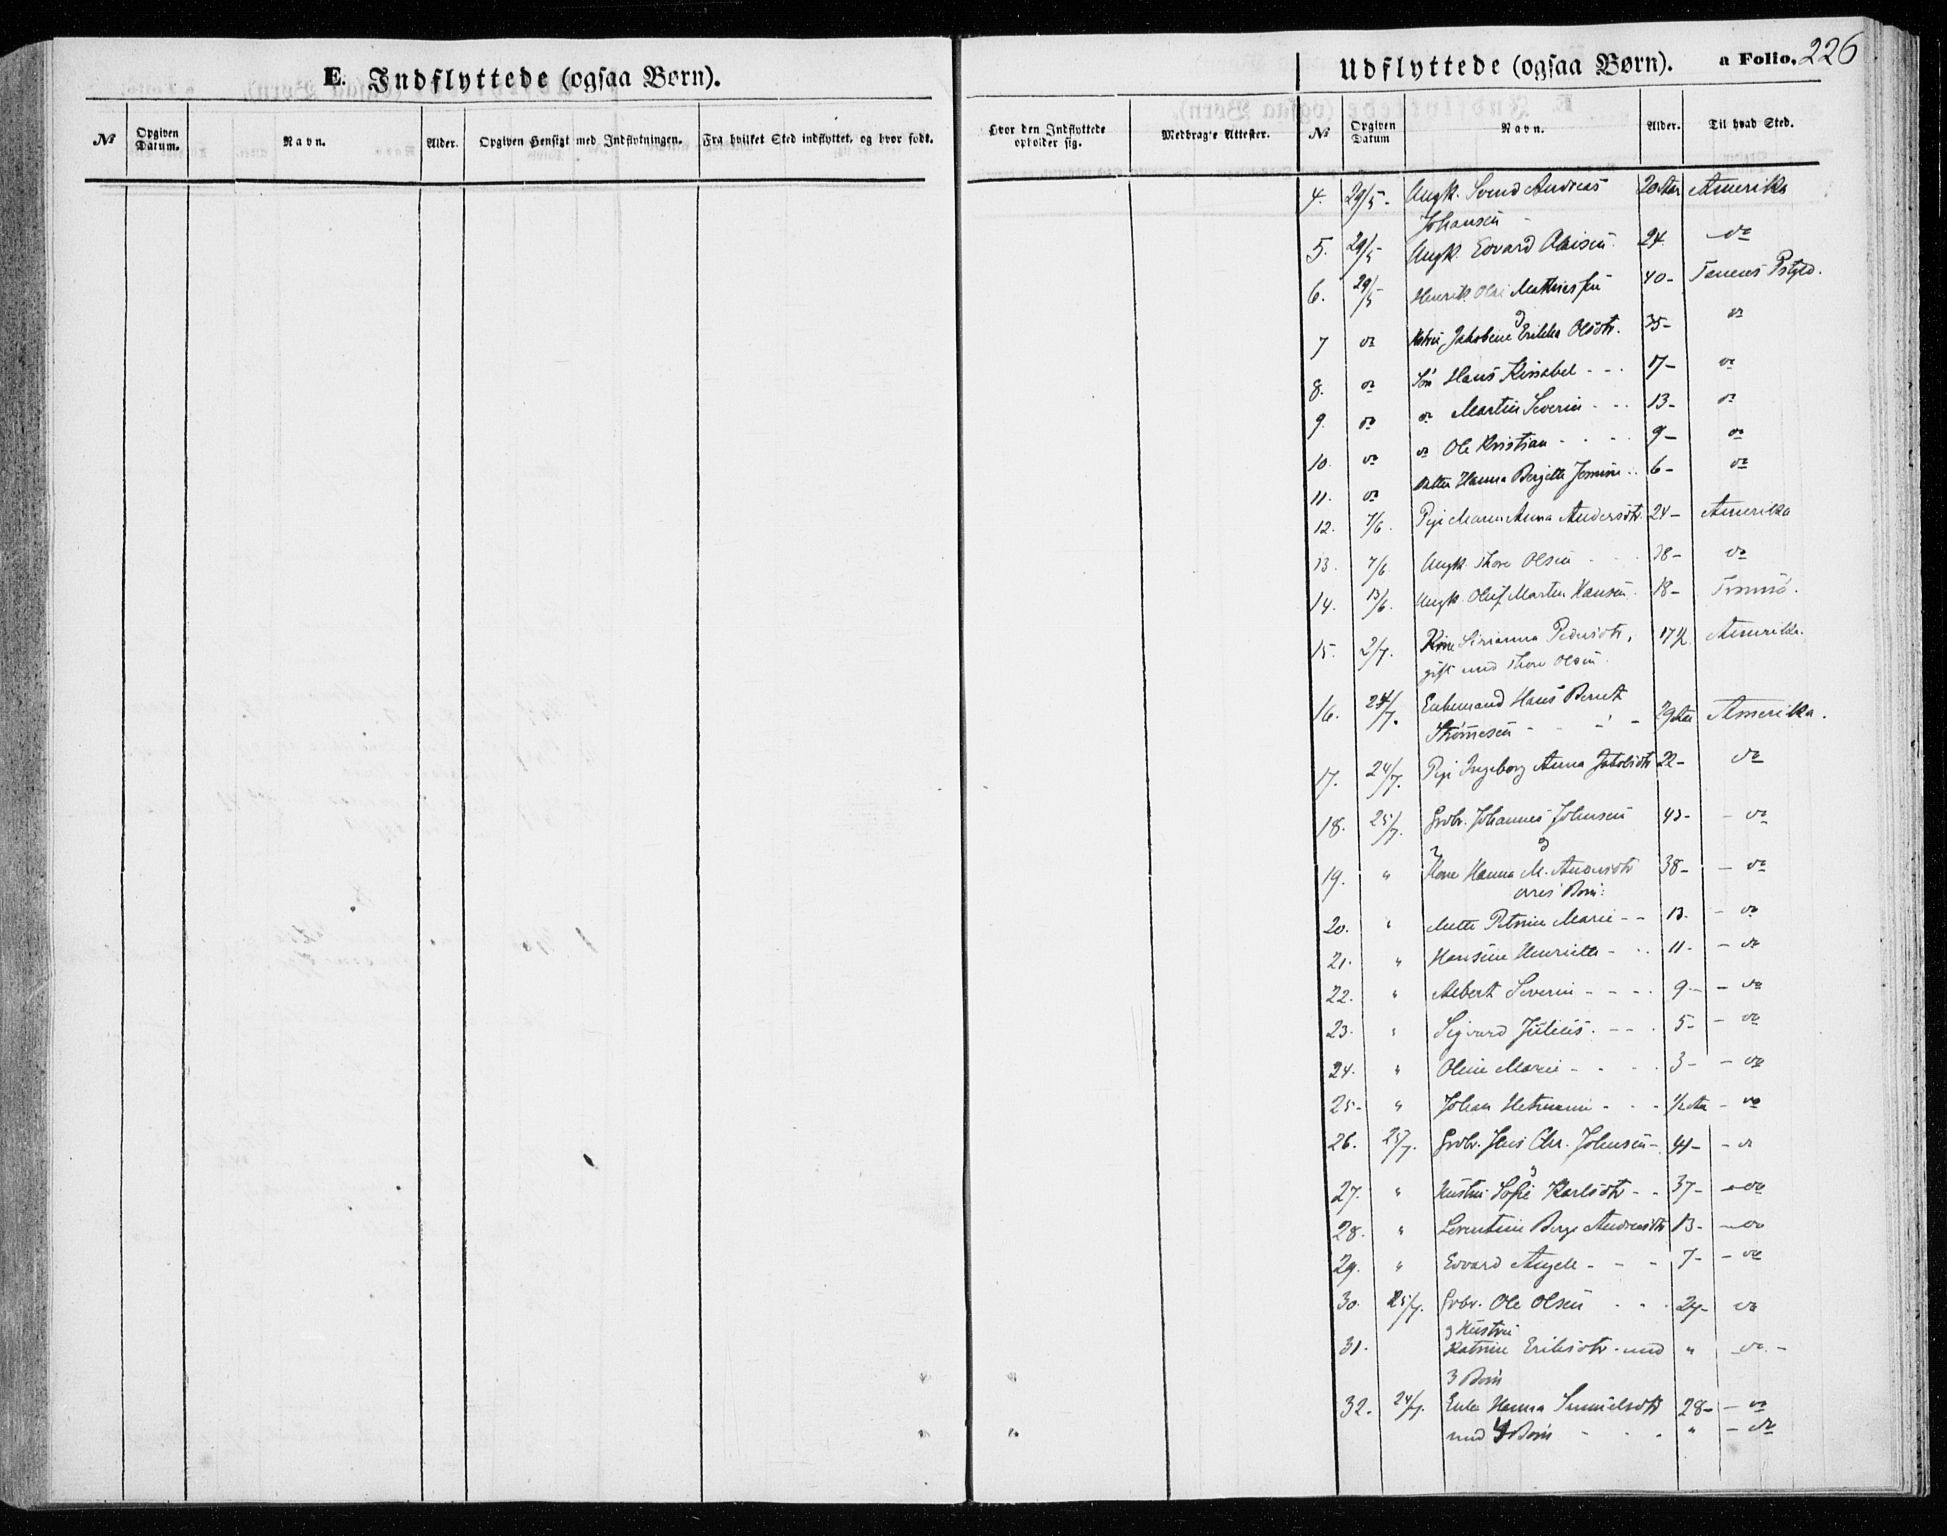 E. Indflyttede (ogsaa Børn).
Udflyttede (ogsaa Børn). a Folio. 226
№ Opgiven Datum. Navn. Alder. Opgiven Hensigt med Indflytningen. Fra hvilket Sted indflyttet, og hvor født. Hvor den Indflyttede opholder sig. Medbragte Attester. № Opgiven Datum Navn. Alder. Til hvad Sted.
4. 29/5 - Ungk. Svend Andreas 20 Aar Amerika
Johansen
5. 29/5 Ungk. Edvard 24 do
6. 29/5 Henrik Olai Mathiessen 40 - Tanens Pstgjd.
7 do Jakobine Erikka Olsdtr. 35 - do
8. do Søn Hans - - 17 - do
9 do do Martin Severin - - 13 - do
10. do do Ole Kristian - - - 9 - do
11. do Datter Hanna Bergitte 6 - do
12. 7/6. Pige Maren Anna Andersdtr. 24 - Amerika
13. 7/6 Ungk. Thore Olsen 28 - do
14. 13/6. Ungk. Oluf Martin Hansen 18 - Tromsø.
15. 2/7. Kone Pedersdtr, 17 1/2 Amerika.
gift med Thore Olsen.
16. 24/7. Enkemand Hans Bernt
Thomesen - - - 29 Aar Amerika.
17. 24/7. Pige Ingeborg Anna Jakobsdtr 22 - do
18. 25/7. Grbr. Johannes Johnsen 43 - - do
og
19. " Kone Hanna M. Andersdtr 38 - - do
deres Børn:
20. " Mette Petrine Marie - - 13. - do
21. " Hansine Henriette - - 11. - do
22. " Albert Severin - - - - 9 - - do
23. " Sigvard Julius. - - - 5 - - do
24. " Oline Marie - - - 3 - - do
25 - " Johan - - - 1/2 Aar - do
26. 25/7. Grbr. Jens Chr. Johnsen - 41 - - do
27. " Hustru Sofie Karlsdtr - - 37 - - do
28. " Lorentine Berg Andreasdtr 13 - - do
29. " Edvard Angell - - - 7 - - do
30. 25/7. Grbr. Ole Olsen - - - 24 - do
og Hustru
31. Katrine Eriksdtr. med " do -
3 Børn
32. 24/7. Enke Hanna 28 - - do
med 4 Børn - - - " - do